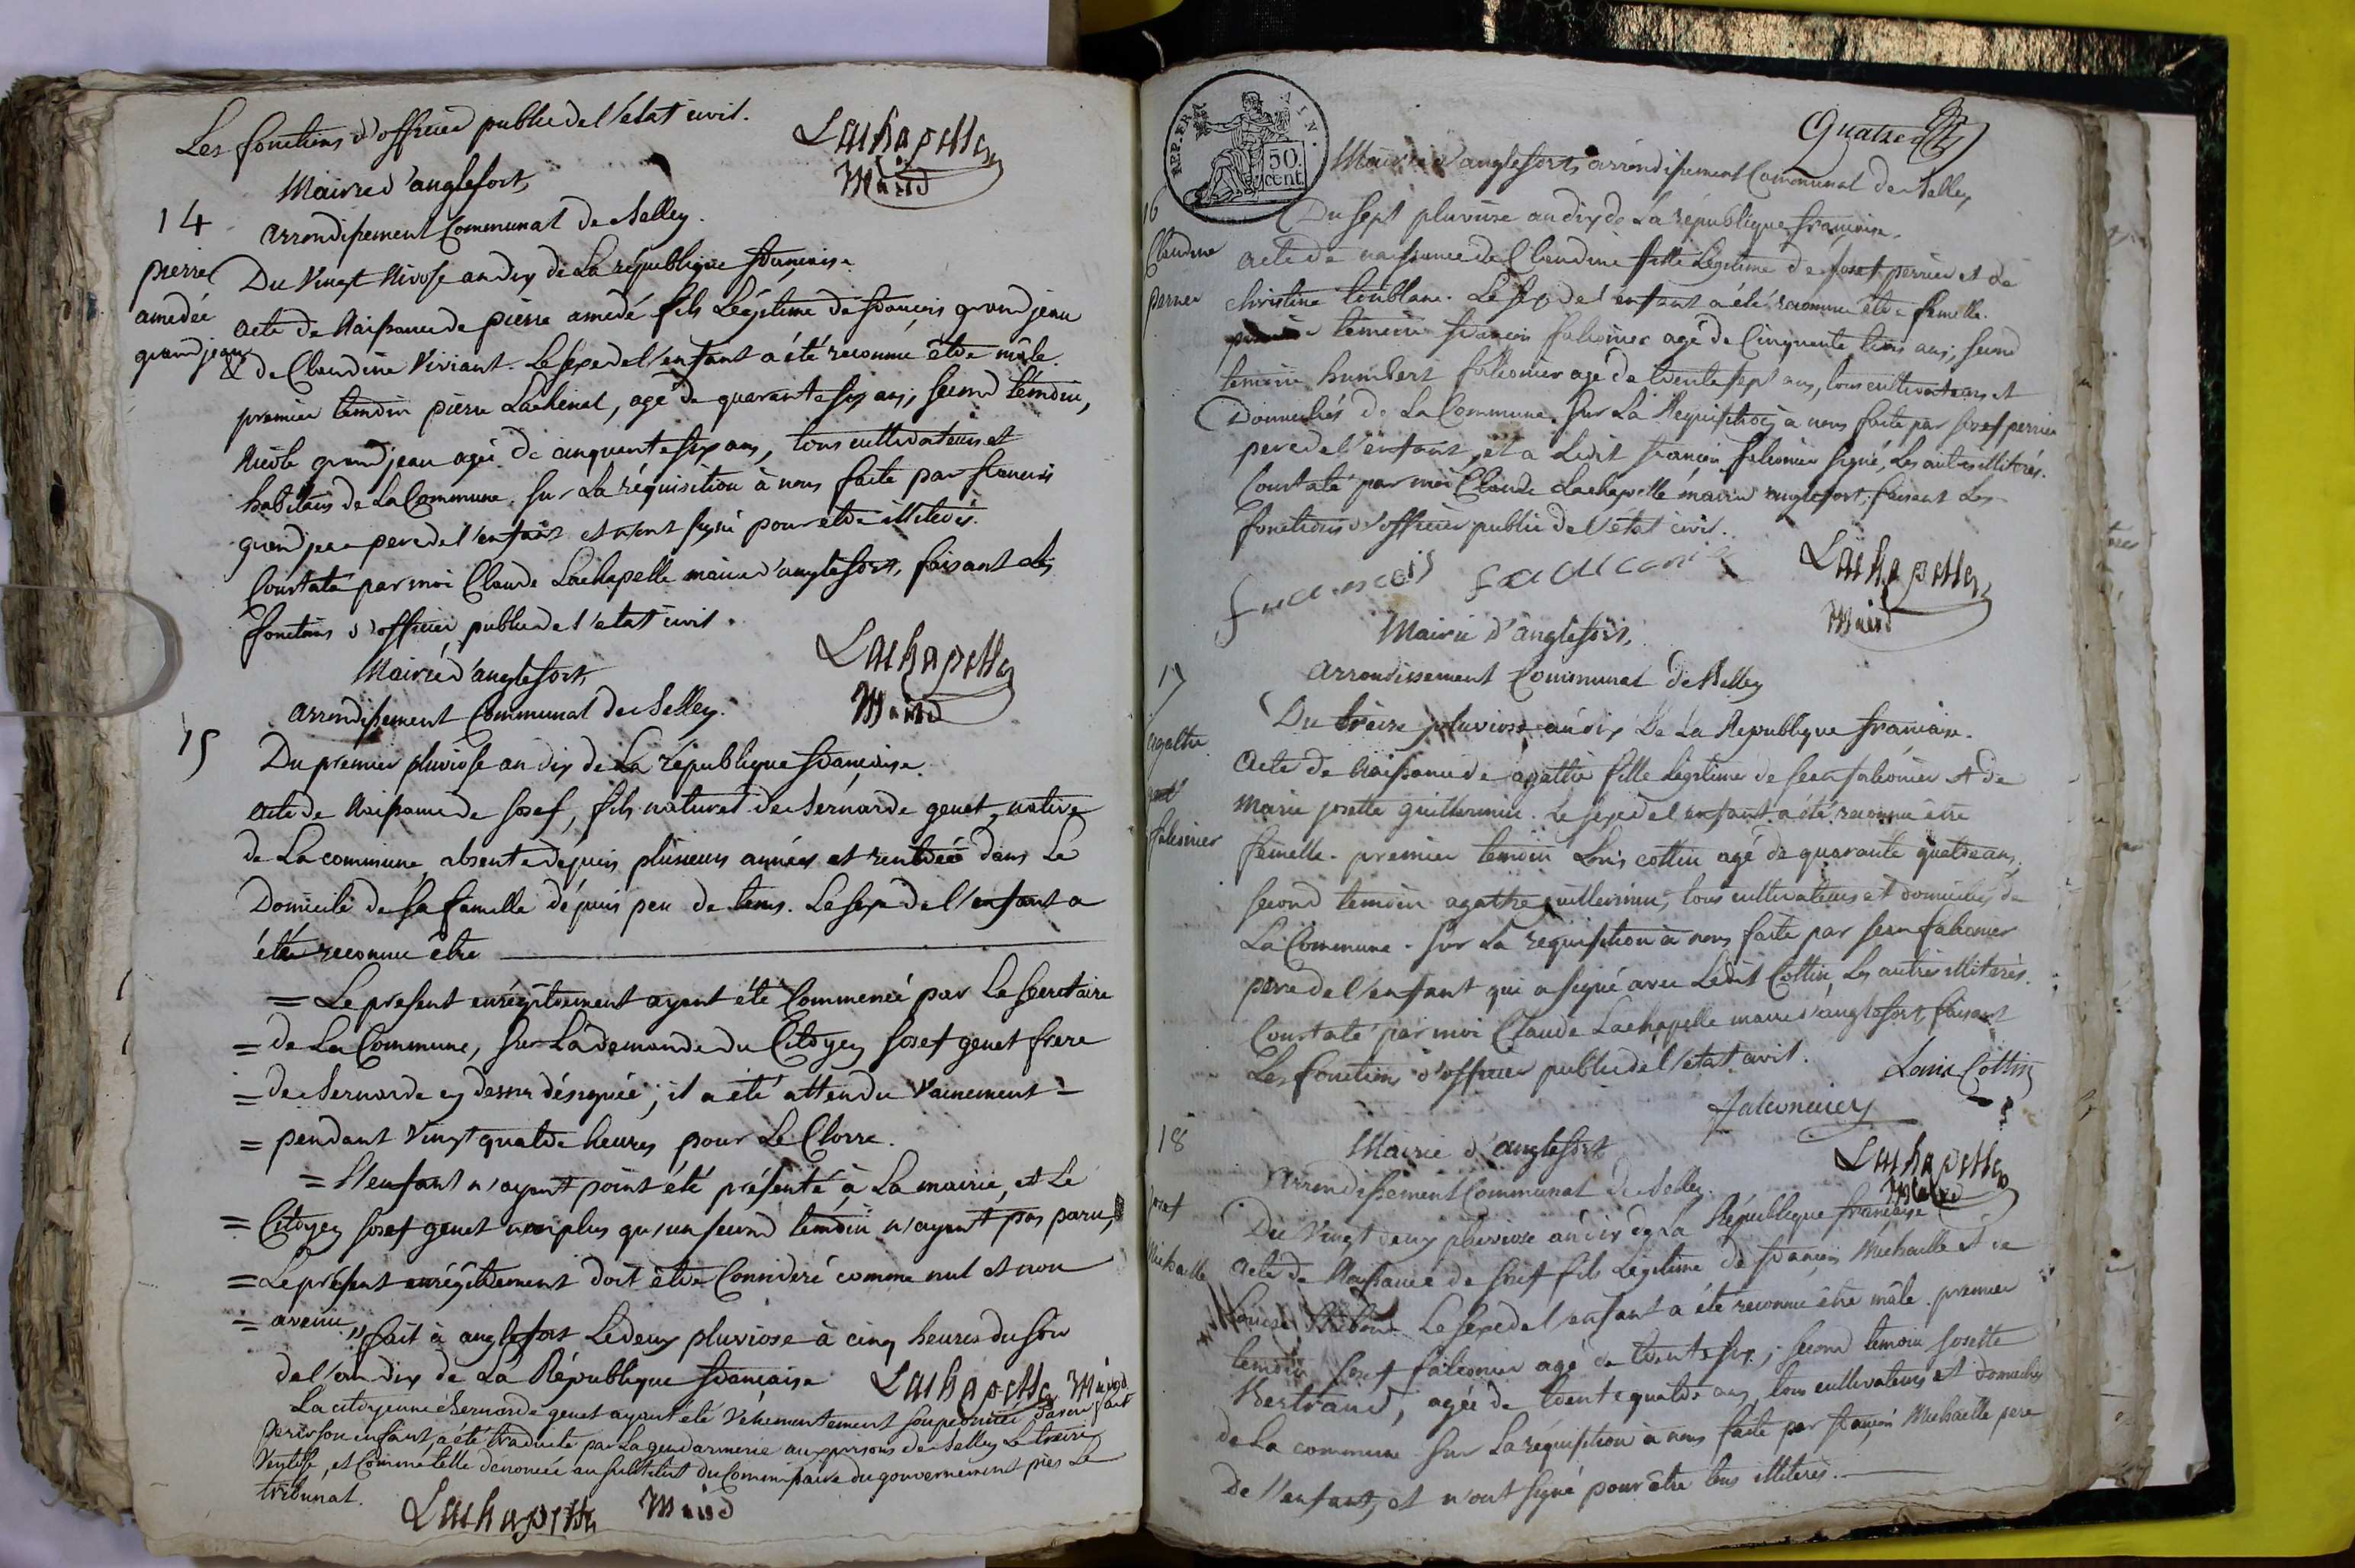 Les fonctions d'officier public de l'état civil.
Lachapelle
Maire
Mairie d'anglefort,
arrondissement Communal de Belley.
14
pierre
amedée
grandjean
Du Vingt Nivose an dix de La république française.
acte de Naissance de pierre amedé fils Légitime de françois grandjean
& de Claudine Viviant. Le sexe de l'enfant a été reconnu être mâle.
premier temoin pierre Lachenal, agé de quarante six ans; second témoin,
Nicole grandjean agée de cinquante six ans, tous cultivateurs et
habitans de La Commune. Sur La réquisition à nous faite par francois
grandjean pere de l'enfant et n'ont signé pour etre illiterés.
Constaté par moi Claude Lachapelle maire d'anglefort, faisant les
fonctions d'officier public de l'etat civil.
Lachapelle
Maire
Mairie d'anglefort,
arrondissement Communal de Belley.
15
Du premier pluviose an dix de La république française.
acte de Naissance de Josef, fils naturel de Bernarde genet, native
de La commune, absente depuis plusieurs années et rentrée dans Le
Domicile de sa famille dépuis peu de tems. Le sexe de l'enfant a
été reconnu être
= Le present enrégitrement ayant été Commencé par Le Secretaire
= de La Commune, sur La demande du Citoyen Josef genet frere
= de Bernarde cy dessus désignée; il a été attendu Vainement =
= pendant Vingt quatre heures pour Le Clorre.
= L'enfant n'ayant point été présenté à La mairie, et Le
= Citoyen Josef genet non plus qu'un second temoin n'ayant pas paru,
= Le présent enrégitrement doit être Consideré comme nul et non
= avenu. fait à anglefort Le deux pluviose à cinq heures du soir
de l'an dix de La République française Lachapelle Maire
La citoyenne Bernarde genet ayant été Véhementement soupçonnée d'avoir fait
perir son enfant, a été traduite par La gendarmerie aux prisons de Belley Le treize
Ventose, et Comme telle denoncée au substitut du Commissaire du gouvernement près Le
tribunal.
Lachapelle Maire
REP. FRA. AIN.
50.
cent.
Quatre
Mairie d'anglefort, arrondissement Communal de Belley,
16
Claudine
perrier
Du sept pluviose an dix de La république française.
acte de naissance de Claudine fille Légitime de Josef perrier et de
christine . Le sexe de l'enfant a été reconnu être femelle.
premier temoin francois falconier agé de Cinquante trois ans; second
temoin humbert falconier agé de trente sept ans, tous cultivateurs et
Domiciliés de La Commune. Sur La Requisition à nous faite par Josef perrier
pere de l'enfant, et a Ledit françois falconier signé, Les autres illiterés.
Constaté par moi Claude Lachapelle maire d'anglefort, faisant Les
fonctions d'officier public de l'état civil.
Lachapelle
Maire
Mairie d'anglefort,
arrondissement Communal de Belley
17
agathe
falconier
Du treize pluviose an dix De La Republique française.
acte de Naissance de agathe fille Légitime de Jean falconier et de
Marie josette guillermin. Le sexe de l'enfant a été reconnu être
femelle. premier temoin Louis cottin agé de quarante quatre ans,
second temoin agathe guillermin, tous cultivateurs et domiciliés de
La Commune. Sur La requisition à nous faite par Jean falconier
pere de l'enfant qui a signé avec Ledit Cottin, Les autres illiterés.
Constaté par moi Claude Lachapelle maire d'anglefort, faisant
Les fonctions d'officier public de l'état civil.
Louis Cottin
falconier
Lachapelle
Maire
18
Josef
Michaelle
Mairie d'anglefort
arrondissement Communal de Belley.
Du Vingt deux pluviose an dix de La République française
acte de Naissance de Josef fils Légitime de françois Michaelle et de
Louise . Le sexe de l'enfant a été reconnu être mâle. premier
temoin Josef falconier agé de trente six; second temoin Josette
Bertrand, agée de trente quatre ans, tous cultivateurs et domiciliés
de La commune. Sur La réquisition à nous faite par françois Michaelle pere
De l'enfant, et n'ont signé pour être tous illiterés.